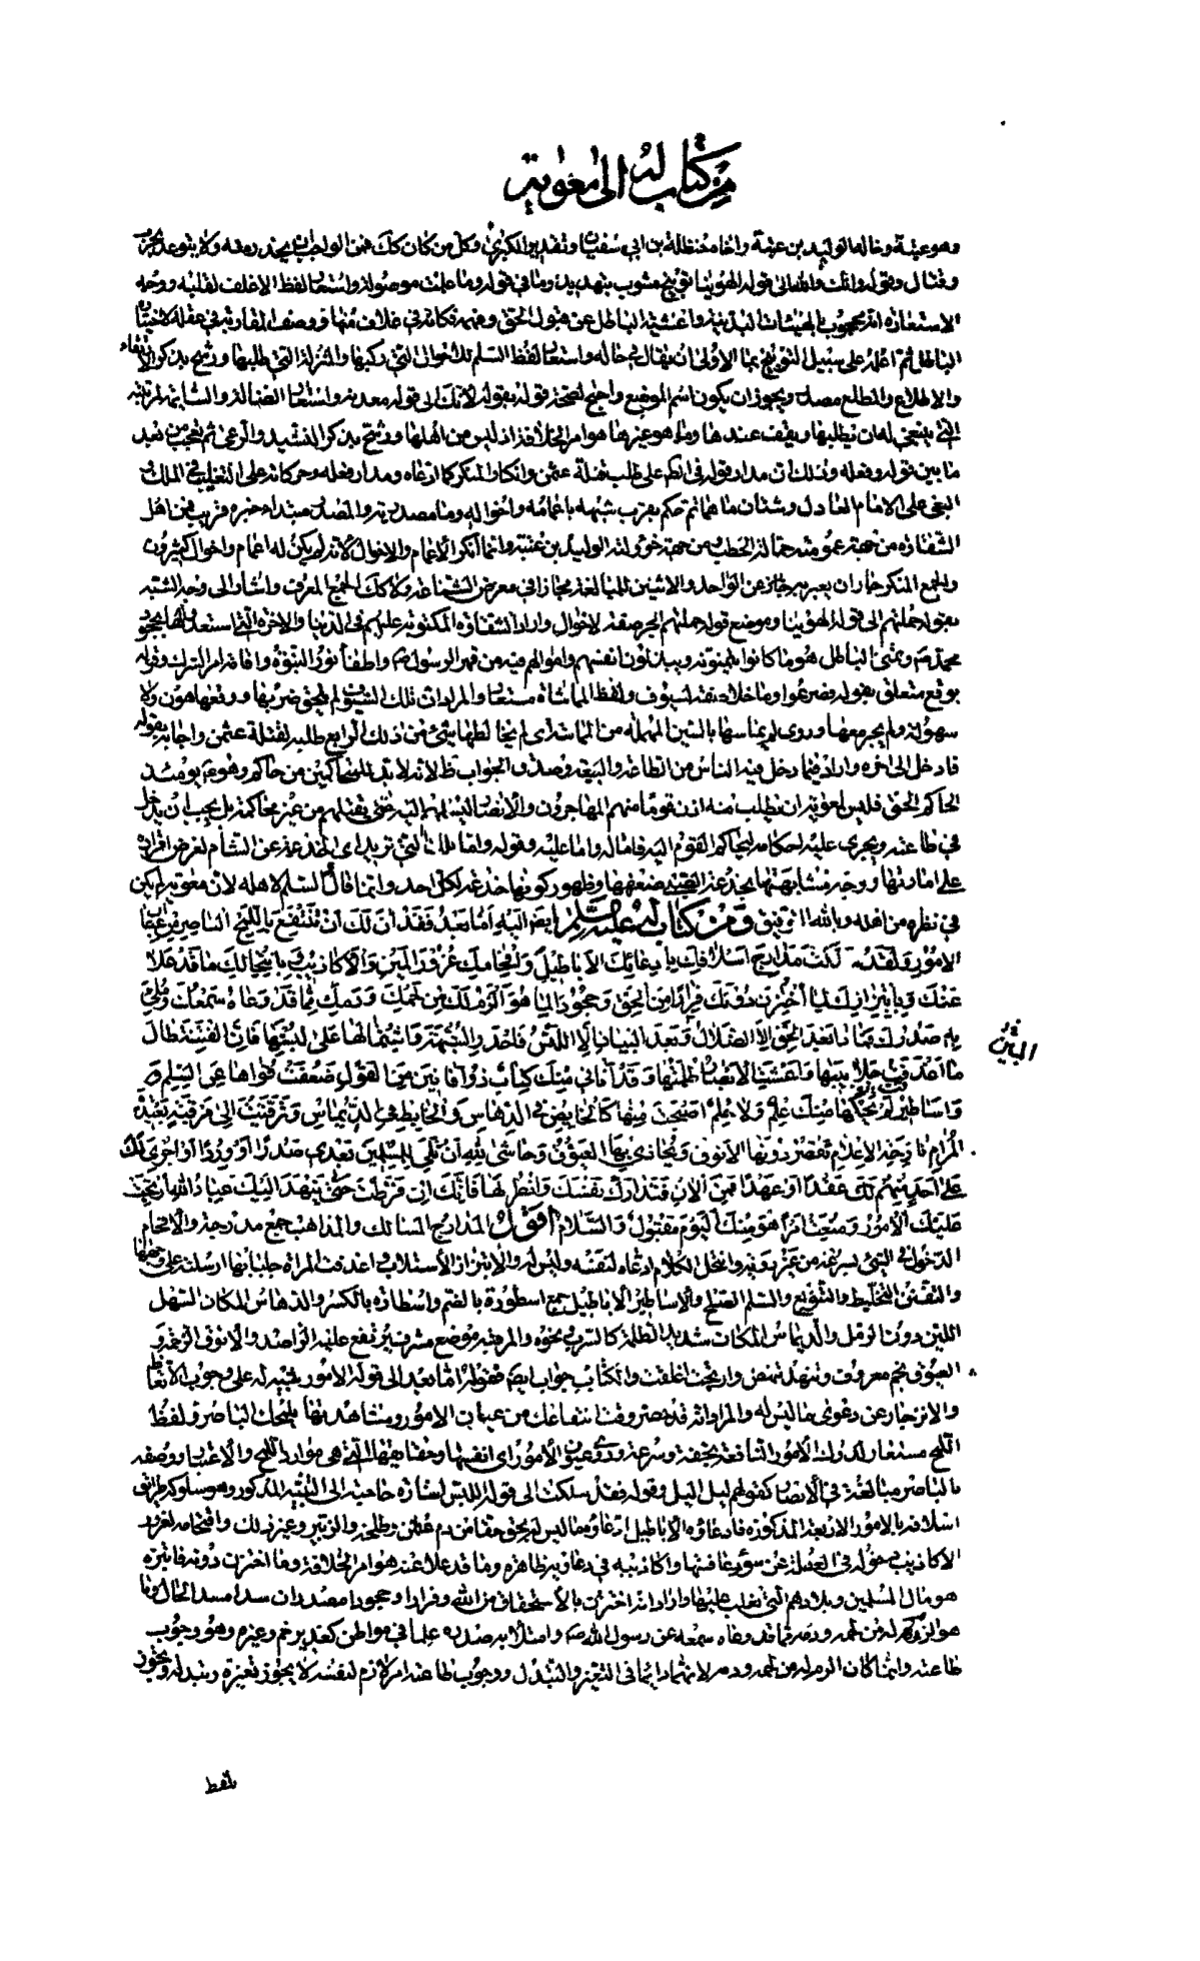 من كتاب له الى معوية
وهو عتبة وخاله الوليد بن عتبة واخاه حنظلة بن ابى سفيان وتقدير الكبرى وكل من كان كك فمن الواجب ان يحذر رمقه ولا يتوعد بحرب
وقتال وقوله وانك والله الى قوله الهوينا توبيخ مشوب بتهديد وما فى قوله وما علمت موصولة واستعار لفظ الاغلف لقلبه ووجه
الاستعارة انه محجوب بالهيئات البدنية واغشية الباطل عن قبول الحق وفهمه فكانه فى غلاف منها ووصف المقاربة فى عقله لاختياره
الباطل ثم اعلمه على سبيل التوبيخ بما الاولى ان يقال فى حاله واستعار لفظ السلم للاحوال التى ركبها والمنزلة التى طلبها ورشح بذكر الارتقاء
والاطلاع والمطلع مصدر ويجوز ان يكون اسم الموضع واحتج لصحة قوله بقوله لانك الى قوله معدنه واستعار الضالة والسائمة لمرتبته
التى ينبغى له ان يطلبها ويقف عندها وما هو غيرها هو امر الخلافة اذ ليس من اهلها ورشح بذكر النشيد والرعى ثم تعجب من بعد
ما بين قوله وفعله وذلك ان مدار قوله فى الحكم على طلب قتلة عثمن وانكار المنكر كما ادعاه ومدار فعله وحركاته على التغلب فى الملك و
البغى على الامام العادل وشتان ما هما ثم حكم بقرب شبهه باعمامه واخواله وما مصدرية والمصدر مبتداء خبره قريب فمن اهل
الشقاوة من جهة عمومته حمالة الحطب ومن جهة خؤولته الوليد بن عتبة وانما انكر الاعمام والاخوال لانه لم يكن له اعمام واخوال كثيرون
والجمع المنكر جاز ان يعبر به مجازا عن الواحد والاثنين للمبالغة مجازا فى معرض الشناعة ولا كك الجمع المعرف واشار الى وجه الشبه
بقوله حملتهم الى قوله الهوينا وموضع قوله حملتهم الجر صفة لاخوال واراد الشقاوة المكتوبة عليهم فى الدنيا والاخرة التى استعدوا لها بجحود
محمد ص وتمنى الباطل هو ما كانوا يتمنونه ويبذلون انفسهم واموالهم فيه من قهر الرسول ص واطفاء نور النبوة واقامة امر الشرك وقوله
بوقع متعلق بقوله فصرعوا وما خلا صفة لسيوف ولفظ المماشاة مستعار والمراد ان تلك السيوف لم يلحق ضربها ووقعها هون ولا
سهولة ولم يجر معها وروى لم يماسها بالسين المهملة من المماسة اى لم يخالطها شئ من ذلك الرابع طلبه لقتلة عثمن واجابه بقوله
فادخل الى اخره واراد فيما دخل فيه الناس من الطاعة والبيعة وصدق الجواب ظ لانه لا بد للمتحاكمين من حاكم وهو ع يومئذ
الحاكم الحق فليس لمعوية ان يطلب منه اذن قوما منهم المهاجرون والانصار ليسلمهم اليه حتى يقتلهم من غير محاكمة بل يجب ان يدخل
فى طاعته ويجرى عليه احكامه ليحاكم القوم اليه فاما له واما عليه وقوله واما تلك التى تريد اى الخدعة عن الشام لغرض اقراره
على امارتها ووجه مشابهتها بخدعة الصبى ضعفها وظهور كونها خدعة لكل احد وانما قال السلم لاهله لان معوية لم يكن
فى نظره من اهله وبالله التوفيق ومن كتاب له عليه السلم ايضا اليه اما بعد فقد ان لك ان تنتفع باللمح الباصر من عيان
الامور ولقد سلكت مدارج اسلافك بادعائك الاباطيل واقحامك غرور المين والاكاذيب وبانتحالك ما قد علا
عنك وبابتزازك لما اختزن دونك فرارا من الحق وجحودا لما هو الزم لك من لحمك ودمك مما قد وعاه سمعك وملئ
به صدرك فماذا بعد الحق الا الضلال وبعد البيان الا اللبس فاحذر الشبهة واشتمالها على لبستها فان الفتنة طال
ما اغدفت جلابيبها واعشت الابصار ظلمتها وقد اتانى منك كتاب ذو افانين من القول ضعفت قواها عن السلم
واساطير لم يحكها منك علم ولا حلم اصبحت منها كالخائض فى الدهاس والخابط فى الديماس وترقيت الى مرقبة بعيدة
المرام نازحة الاعلام تقصر دونها الانوق ويحاذى بها العيوق وحاش لله ان تلى للمسلمين بعدى صدرا او وردا او اجرى لك
على احد منهم عقدا او عهدا فمن الان فتدارك نفسك وانظر لها فانك ان فرطت حتى ينهد اليك عباد الله ارتجت
عليك الامور ومنعت امرا هو منك اليوم مقبول والسلام اقول المدارج المسالك والمذاهب جمع مدرجة والاقحام
الدخول فى الشئ بسرعة من غير روية وانتحل الكلام ادعاه لنفسه وليس له والابتزاز الاستلاب اغدفت المراة جلبابها ارسلته على وجهها
والتفنن التخليط والتنويع والسلم الصلح والاساطير الاباطيل جمع اسطورة بالضم واسطارة بالكسر والدهاس المكان السهل
اللين دون الرمل والديماس المكان شديد الظلمة كالسرب ونحوه والمرقبة موضع مشرف يرتفع عليه الراصد والانوق الرخمة و
العيوق نجم معروف وتنهد تنهض وارتجت اغلقت والكتاب جواب ايضا فقوله اما بعد الى قوله الامور تنبيه له على وجوب الاتعاظ
والانزجار عن دعوى ما ليس له والمراد انه قد حضر وقت انتفاعك من عيان الامور ومشاهدتها بلمحك الباصر ولفظ
اللمح مستعار لدرك الامور النافعة بخفة وسرعة وروى عيون الامور اى انفسها وحقايقها التى هى موارد اللمح والاعتبار ووصفه
بالباصر مبالغة فى الابصار كقولهم ليل اليل وقوله فقد سلكت الى قوله اللبس اشارة خاصة الى الشبه المذكور وهو سلوكه طرائق
اسلافه بالامور الاربعة المذكورة فادعاؤه الاباطيل ادعاؤه ما ليس له بحق حقا من دم عثمن وطلحة والزبير وغير ذلك واقحامه لغرور
الاكاذيب دخوله فى الغفلة عن سوء عاقبتها واكاذيبه فى دعاويه ظاهرة وما قد علا عنه هو امر الخلافة وما اختزن دونه فابتزه
هو مال المسلمين وبلادهم التى تغلب عليها واراد انه اختزن بالاستحقاق من الله وفرارا وجحودا مصدران سدا مسد الحال وما
هو الزم له من لحمه ودمه مما قد وعاه سمعه عن رسول الله ص وامتلا به صدره علما فى مواطن كغدير خم وغيره وهو وجوب
طاعته وانما كان الزم له من لحمه ودمه لانهما دائما فى التغير والتبدل ووجوب طاعته امر لازم لنفسه لا يجوز تغييره وتبديله ويجوز
المبين
بلفظ